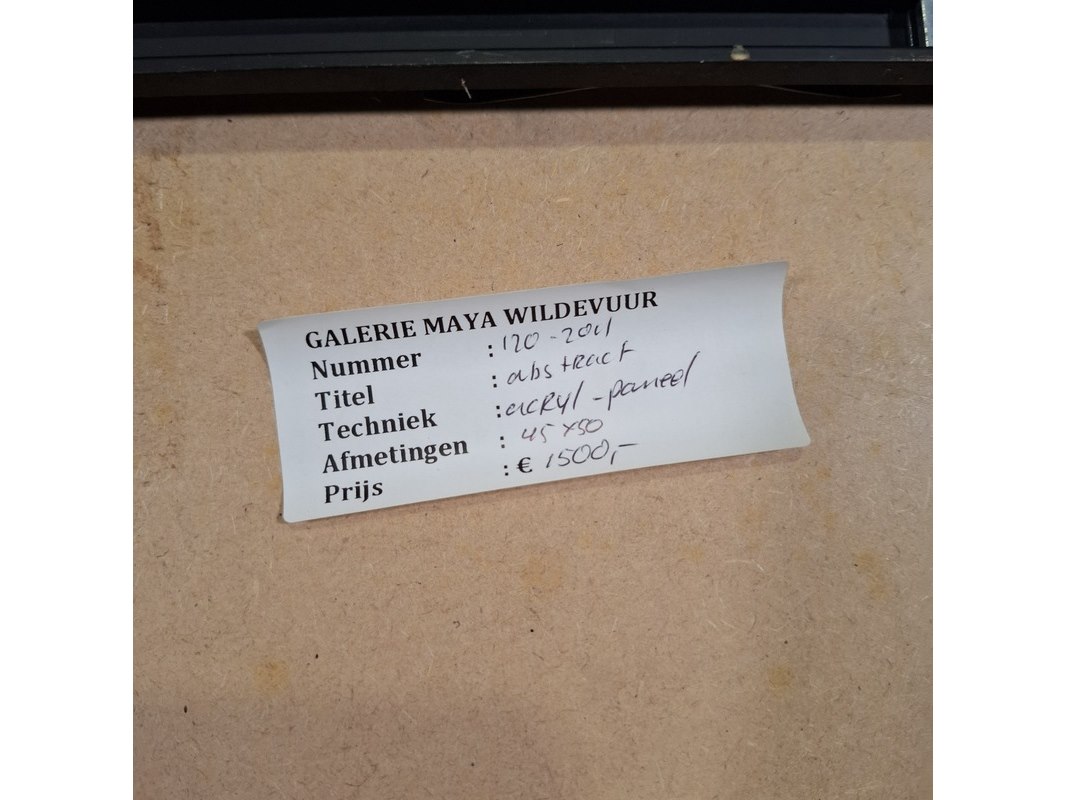 GALERIE MAYA WILDEVUUR
Nummer : 120-2011
Titel : abstract
Techniek : acryl-paneel
Afmetingen : 45 x50
Prijs : € 1500,-